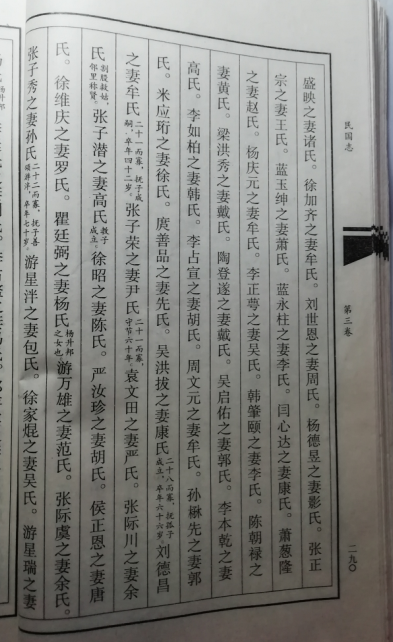 民国志
第三卷
二九〇
盛映之妻诸氏。徐加齐之妻牟氏。刘世恩之妻周氏。杨德昱之妻影氏。张正
宗之妻王氏。蓝玉绅之妻萧氏。蓝永柱之妻李氏。闫心达之妻康氏。萧葱隆
之妻赵氏。杨庆元之妻牟氏。李正萼之妻吴氏。韩肇颐之妻李氏。陈朝禄之
妻黄氏。梁洪秀之妻戴氏。陶登遂之妻戴氏。吴启佑之妻郭氏。李本乾之妻
高氏。李如柏之妻韩氏。李占宣之妻胡氏。周文元之妻牟氏。孙楙先之妻郭
氏。米应珩之妻徐氏。庹善品之妻先氏。吴洪拔之妻康氏二十八而寡，抚孤子成立，卒年六十六岁。刘德昌
之妻牟氏二十一而寡，抚子成嗣，卒年四十二岁。张子荣之妻尹氏二十一而寡，守节六十年。袁文田之妻严氏。张际川之妻余
氏割股救姑，邻里称贤。张子潜之妻高氏教子成立。徐昭之妻陈氏。严汝珍之妻胡氏。侯正恩之妻唐
氏。徐维庆之妻罗氏。瞿廷弼之妻杨氏杨井邦之女也。游万雄之妻范氏。张际虞之妻余氏。
张子秀之妻孙氏二十二而寡，抚子善，卒年七十岁。游星泮之妻包氏。徐家焜之妻吴氏。游星瑞之妻